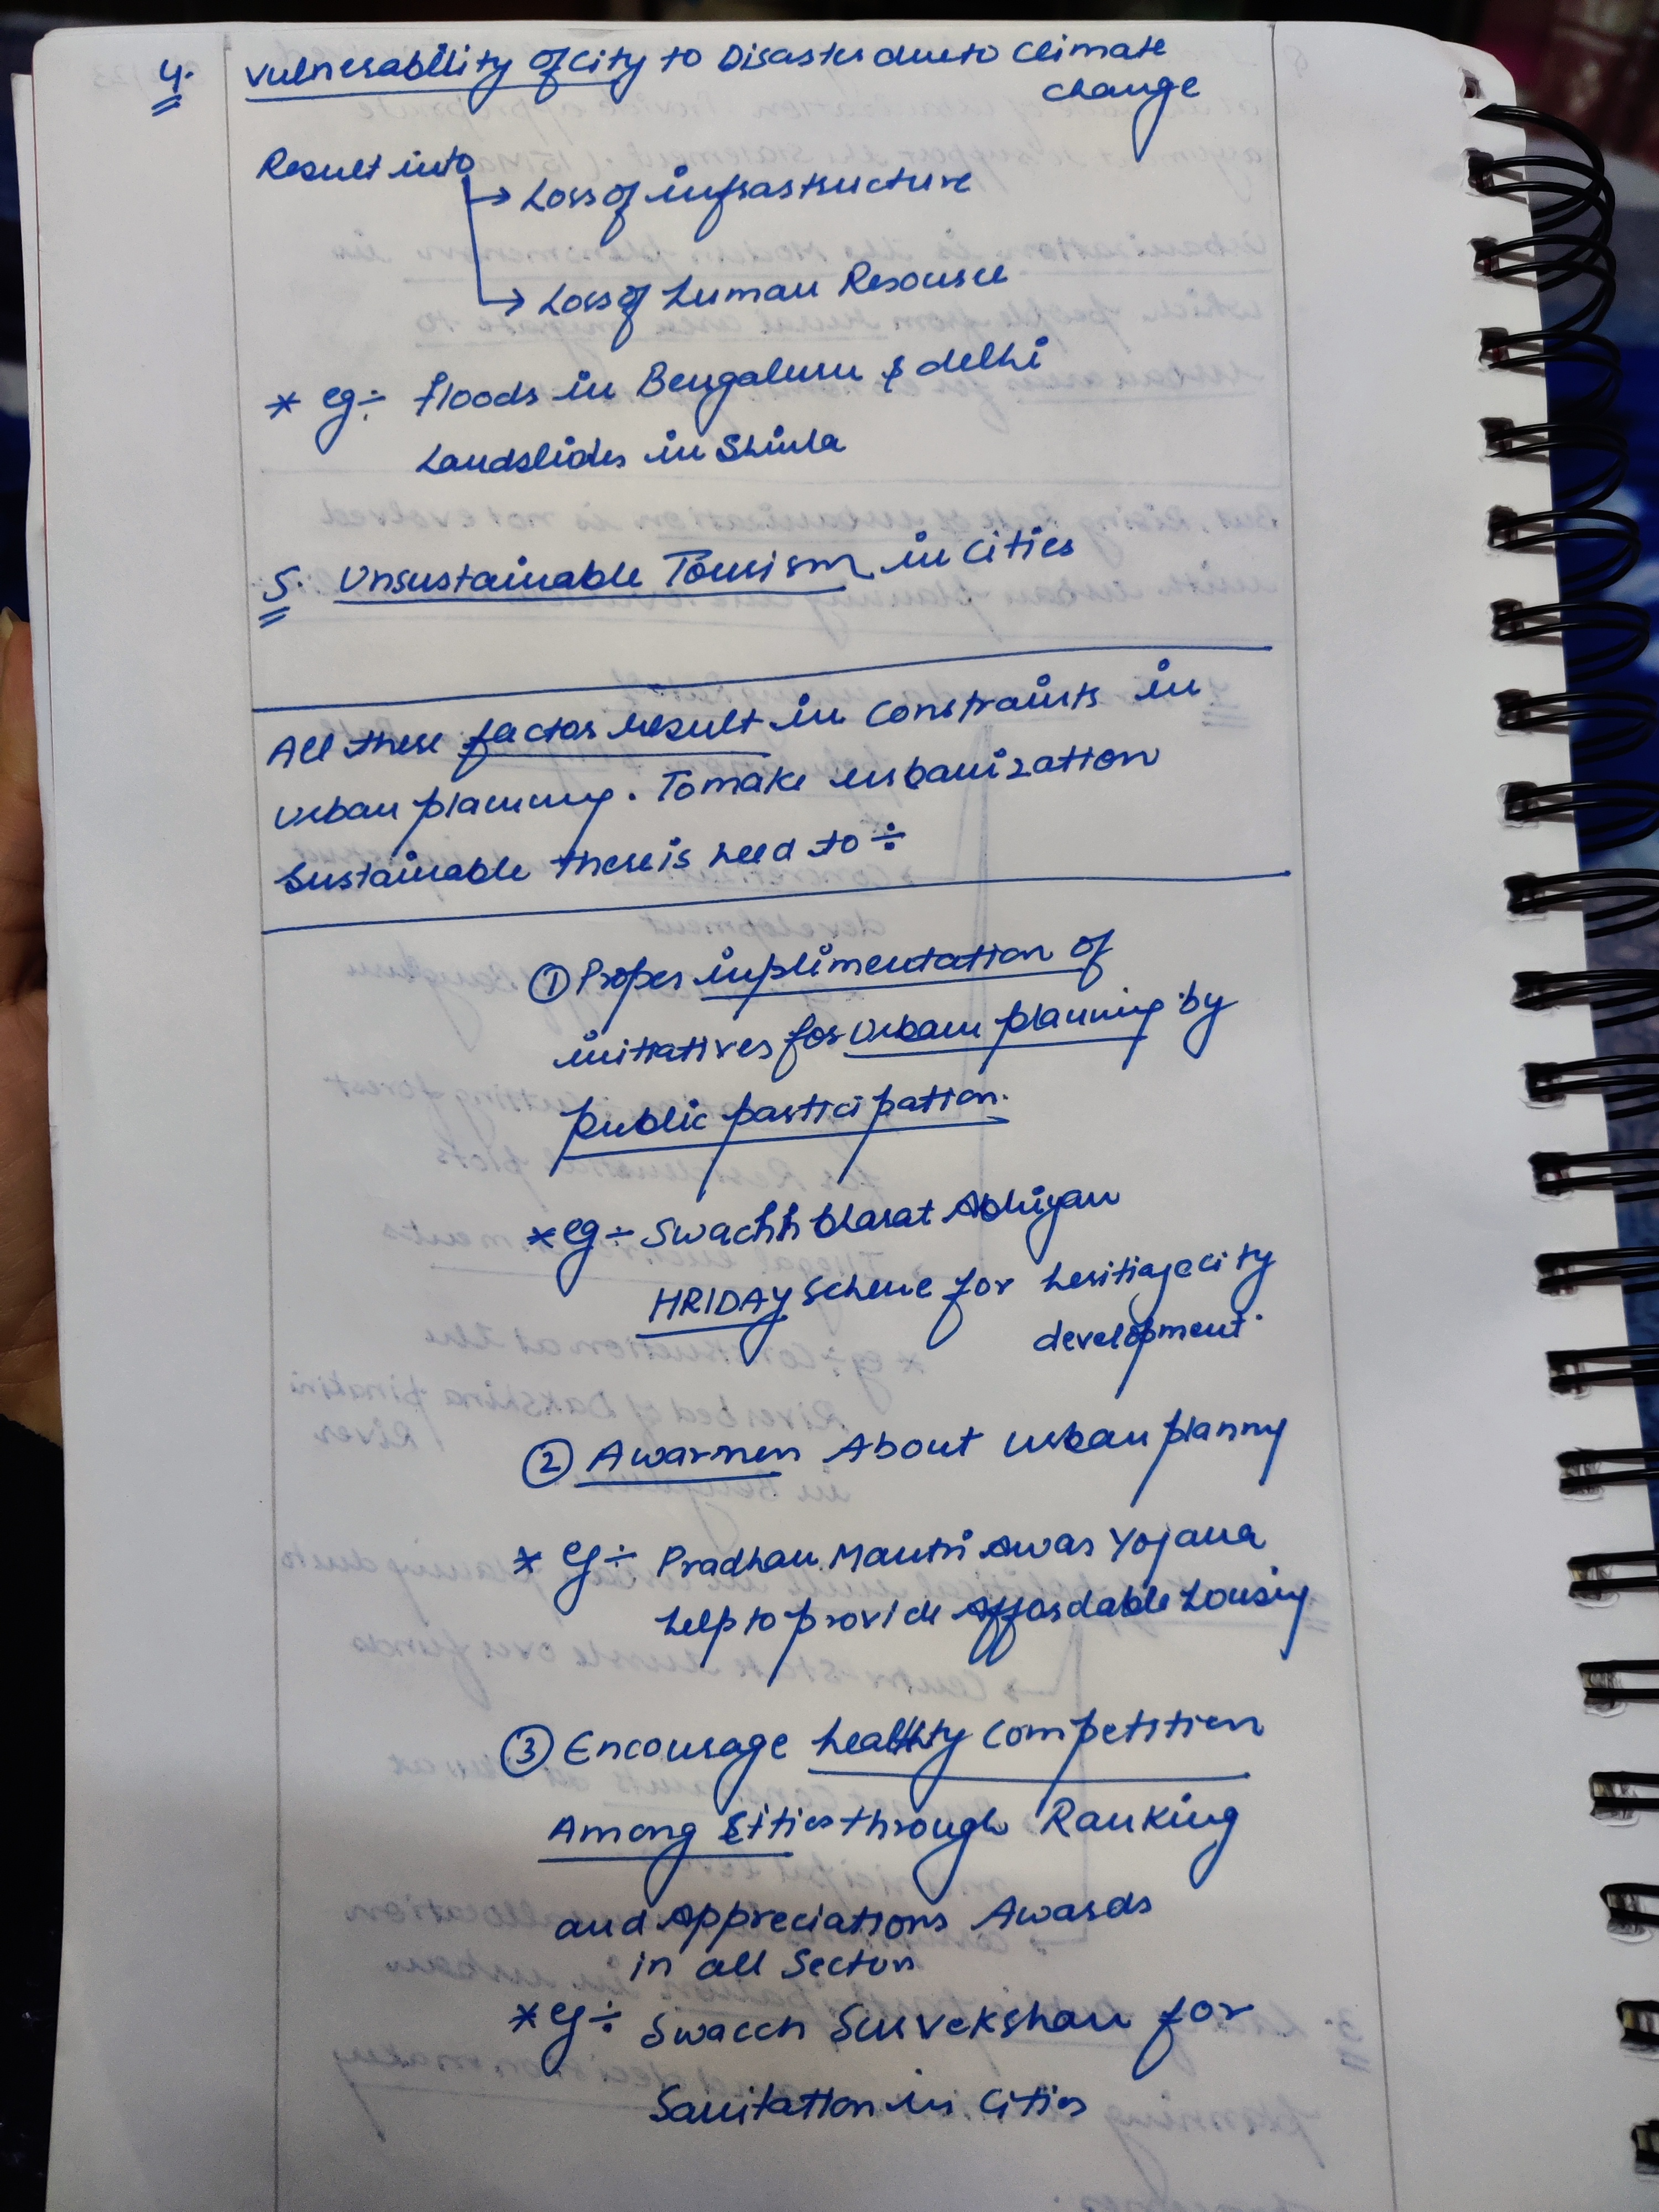 4. Vulnerability of city to Disaster due to climate
change
Result into
→ Loss of infrastructure
→ Loss of human Resource
* eg ÷ floods in Bengaluru & delhi
Landslides in Shimla
5. Unsustainable Tourism in cities
All these factor result in constraints in
urban planning. To make urbanization
sustainable there is need to ÷
① Proper implimentation of
initiatives for urban planning by
public participation.
* eg ÷ Swachh bharat Abhiyan
HRIDAY scheme for heritage city
development.
② Awarness About urban planning
* eg ÷ Pradhan Mantri Awas Yojana
help to provide Affordable housing
③ Encourage healthy competition
Among cities through Ranking
and Appreciations Awards
in all sectors
* eg ÷ Swacch Survekshan for
Sanitation in cities